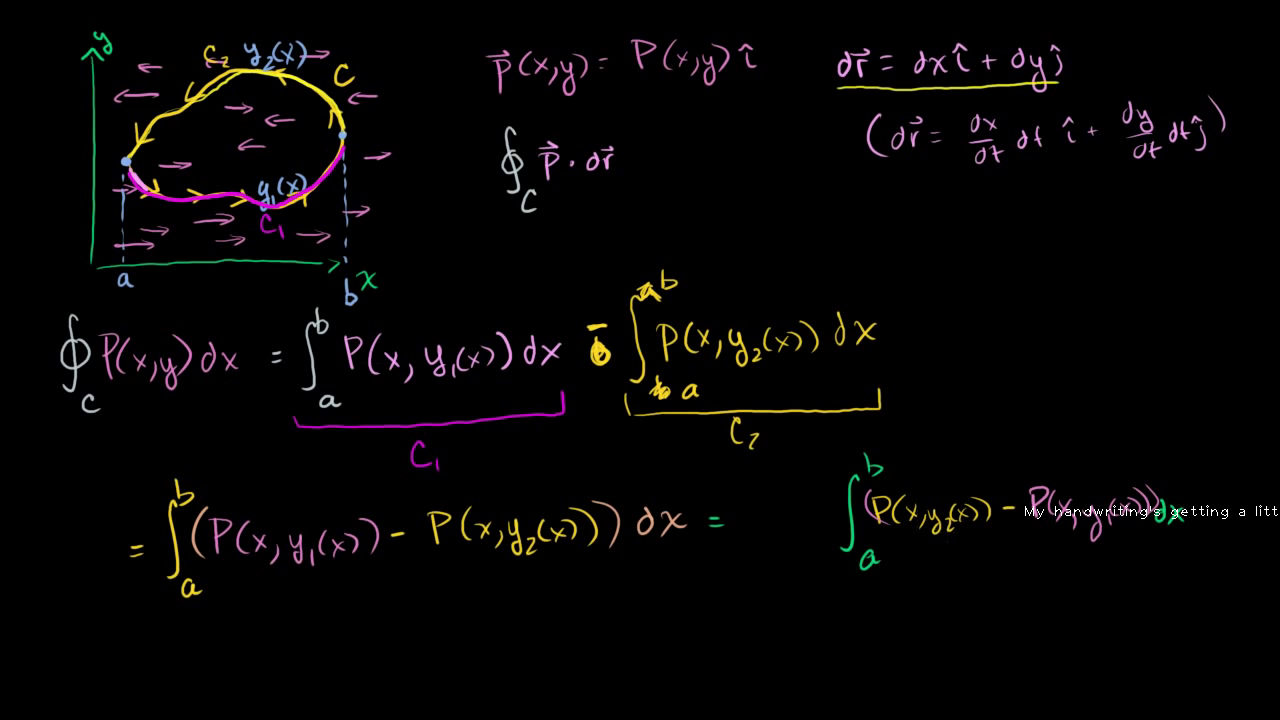 y
C₂ y₂(x)
C
y₁(x)
C₁
a
b
x
p⃗(x,y) = P(x,y) î
dr⃗ = dx î + dy ĵ
(dr⃗ = dx/dt dt î + dy/dt dt ĵ)
∮_C p⃗ · dr⃗
∮_C P(x,y) dx = ∫_a^b P(x, y₁(x)) dx - ∫_a^b P(x, y₂(x)) dx
C₁
C₂
= ∫_a^b (P(x, y₁(x)) - P(x, y₂(x))) dx =
∫_a^b (P(x, y₂(x)) - P(x, y₁(x))) dx
My handwriting's getting a litt